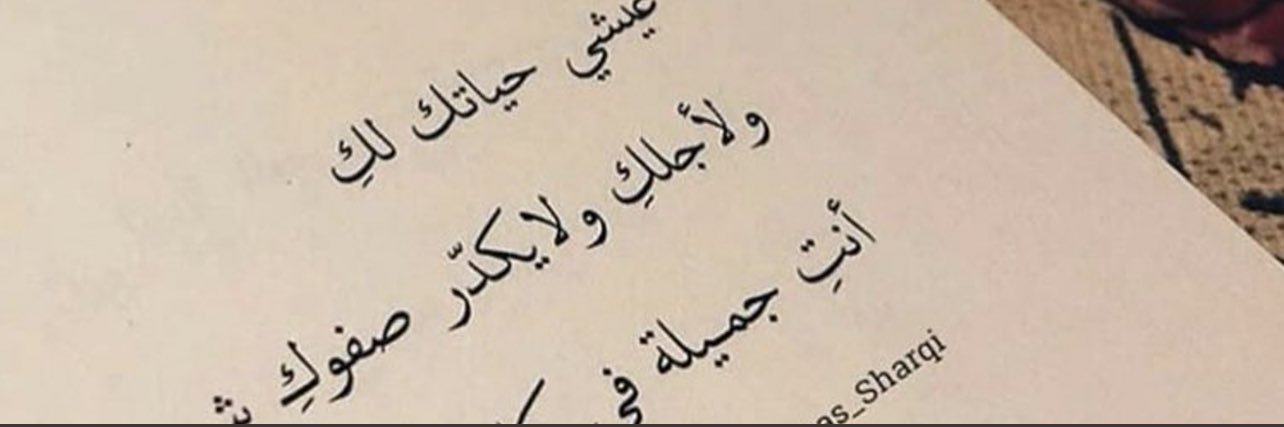 عيشي حياتك لكِ
ولأجلكِ ولايكدّر صفوكِ
أنتِ جميلة في
as_Sharqi